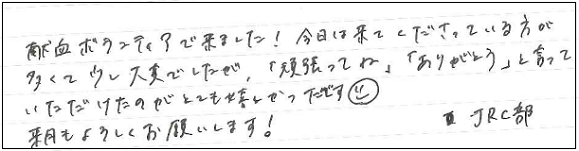 献血ボランティアで来ました！今日は来てくださっている方が
多くて少し大変でしたが、「頑張ってね」「ありがとう」と言って
いただけたのがとても嬉しかったです☺
来月もよろしくお願いします！
JRC部